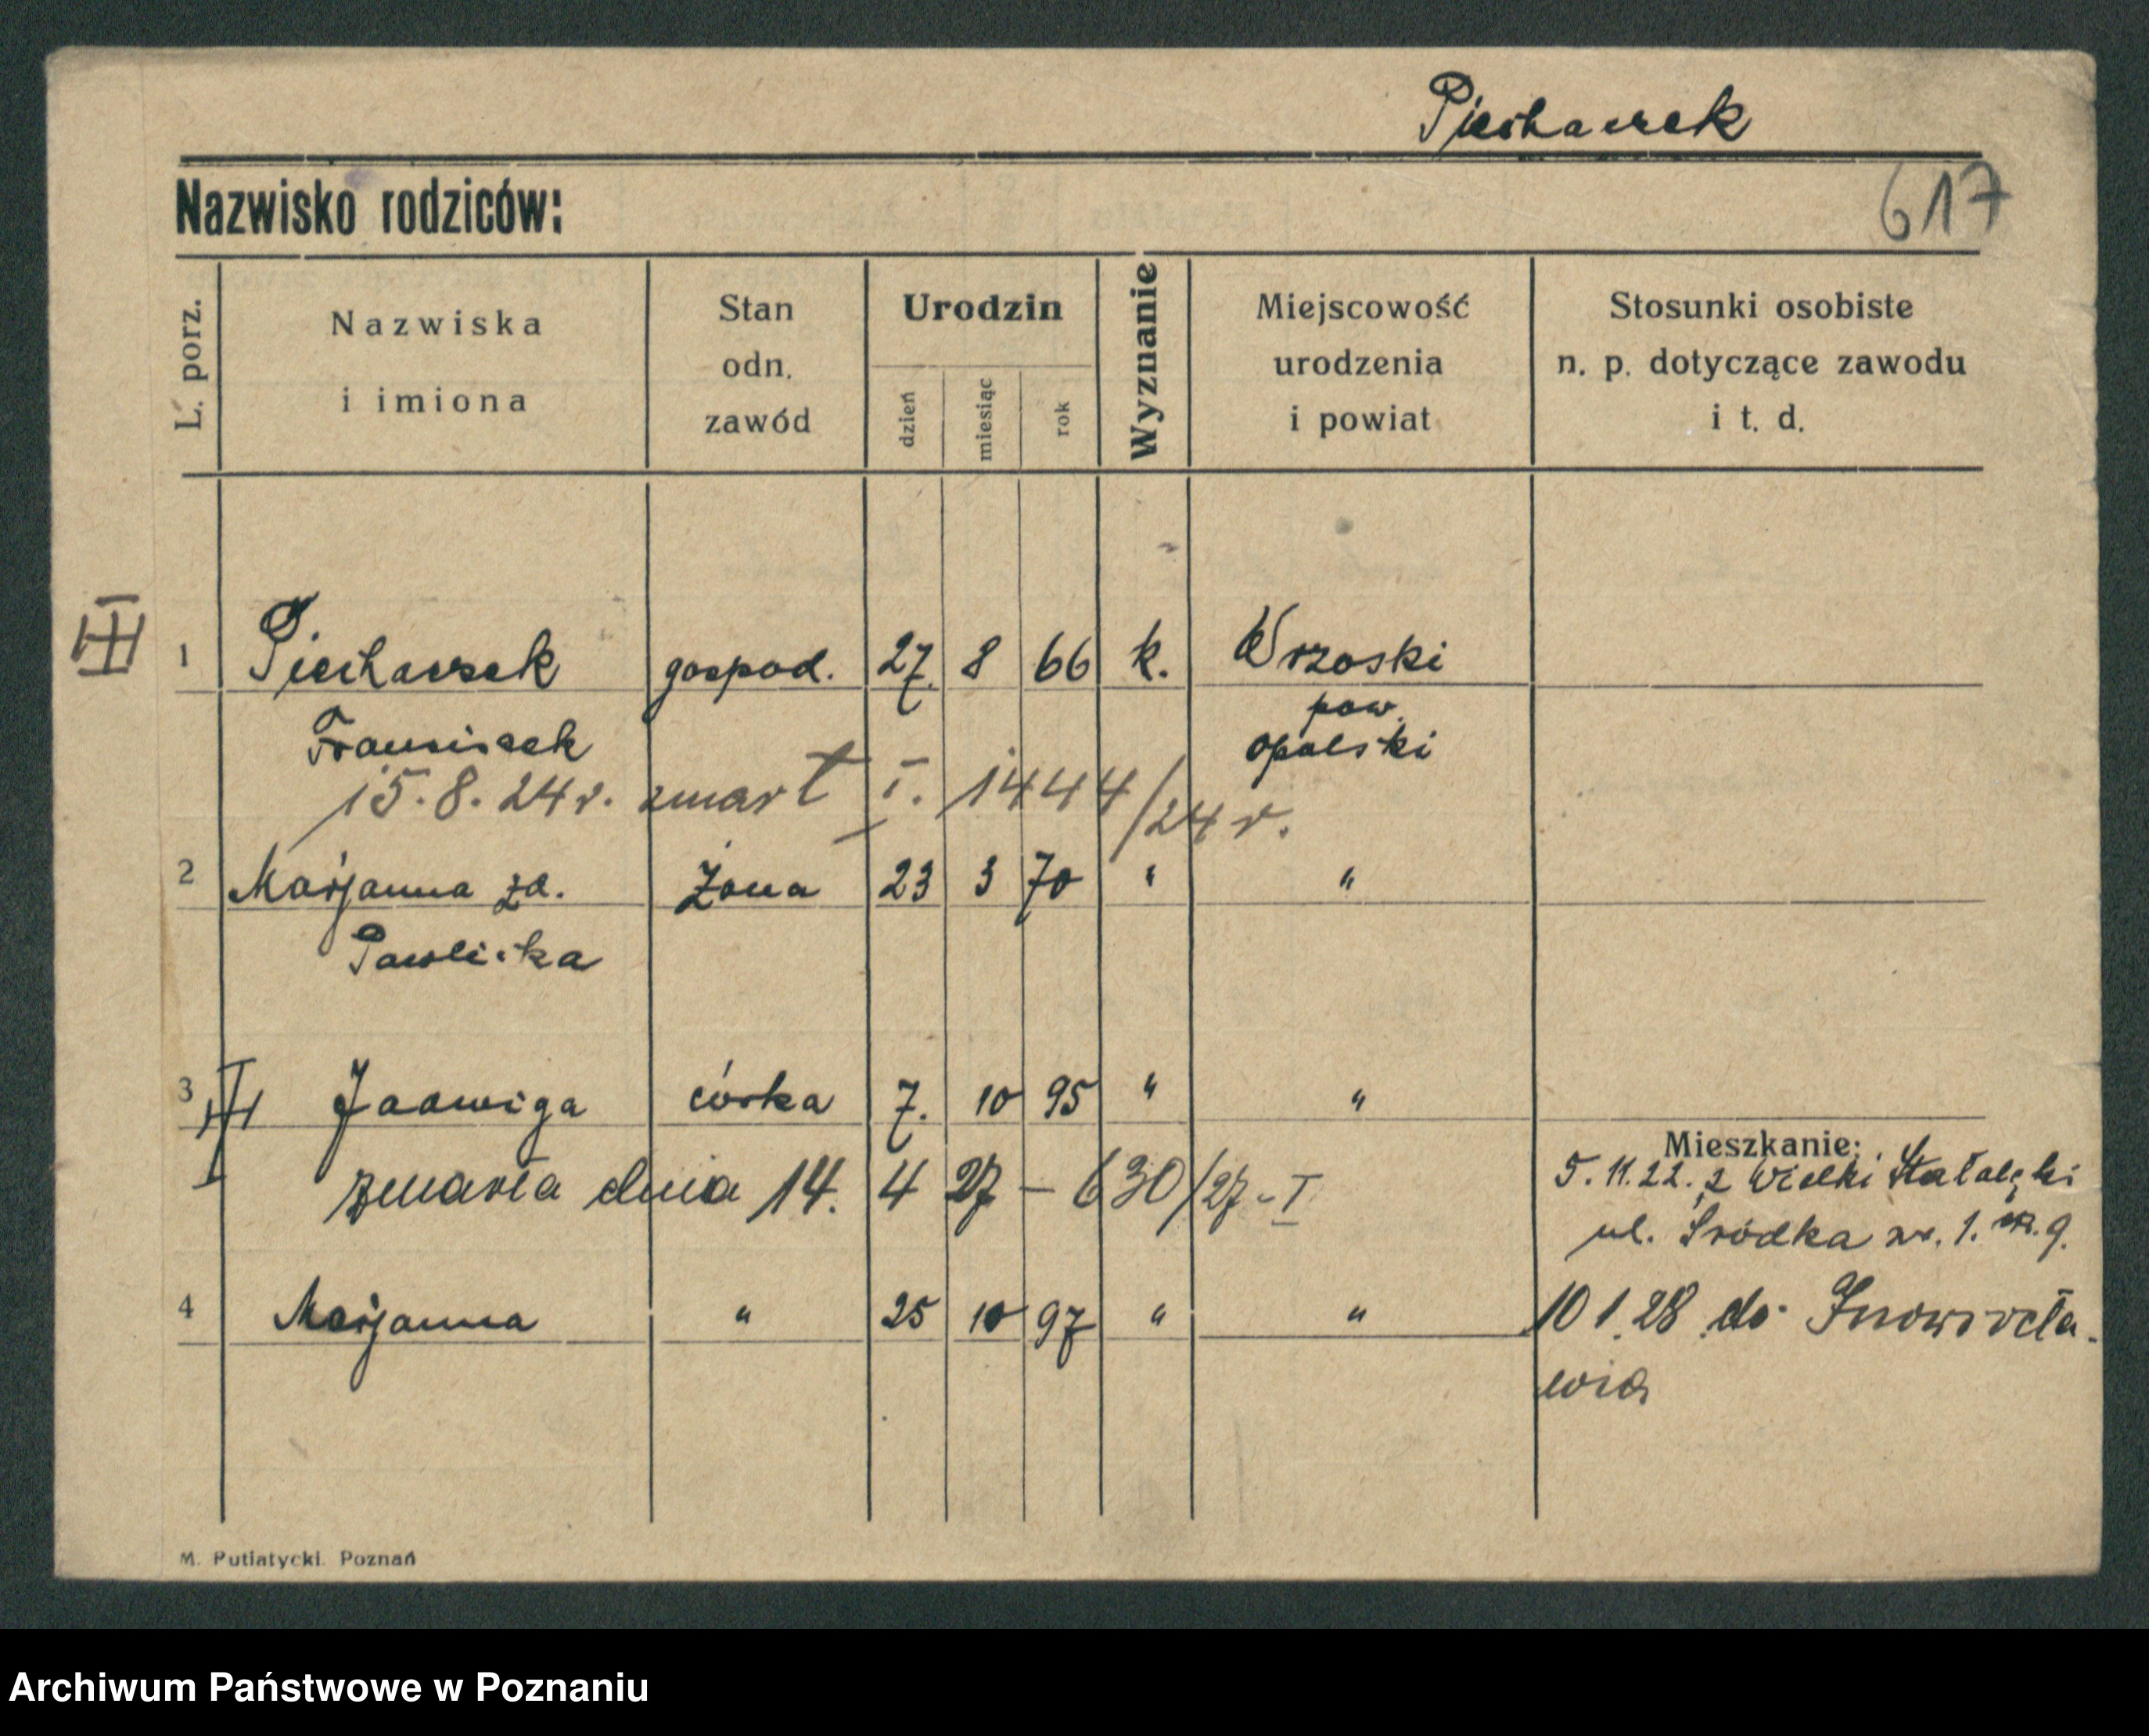 Piechaczek
Nazwisko rodziców:
617
L. porz.
Nazwiska
i imiona
Stan
odn.
zawód
Urodzin
dzień
miesiąc
rok
Wyznanie
Miejscowość
urodzenia
i powiat
Stosunki osobiste
n. p. dotyczące zawodu
i t. d.
III 1 Piechaczek gospod. 27. 8 66 k. Wrzoski
Franciszek pow.
opolski
15.8.24 r. zmarł I. 1444/24 r.
2 Marjanna zd. żona 23 3 70 " "
Pawliczka
3 Jadwiga córka 7. 10 95 " "
zmarła dnia 14. 4 27 – 630/27 - I
Mieszkanie:
5.11.22. z Wielki
ul. Śródka nr. 1. m. 9.
4 Marjanna " 25 10 97 " "
10 1.28 do Inowrocła-
wia
M. Putiatycki. Poznań
Archiwum Państwowe w Poznaniu